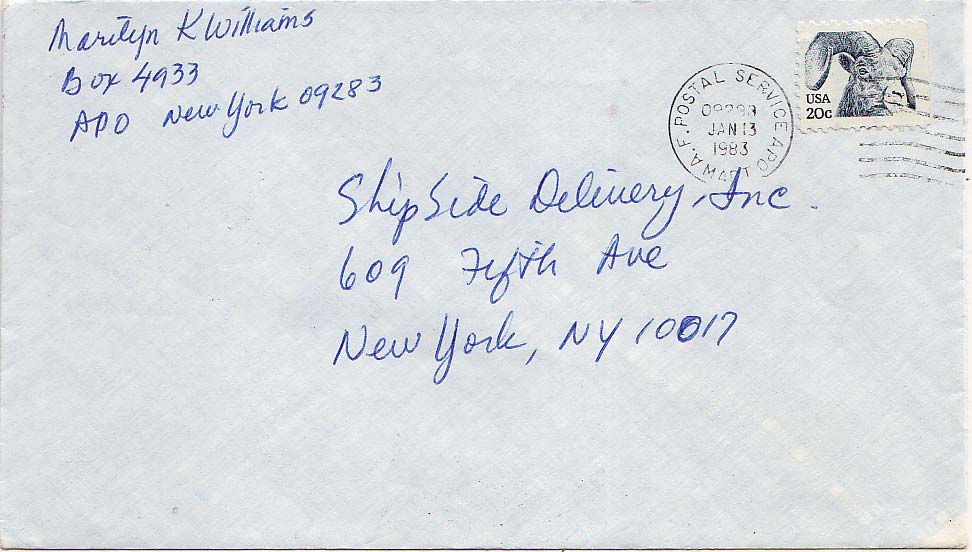 Marilyn K Williams
Box 4933
APO New York 09283
POSTAL SERVICE APO
JAN 13
1983
A.F.
USA
20c
ShipSide Delivery, Inc.
609 Fifth Ave
New York, NY 10017